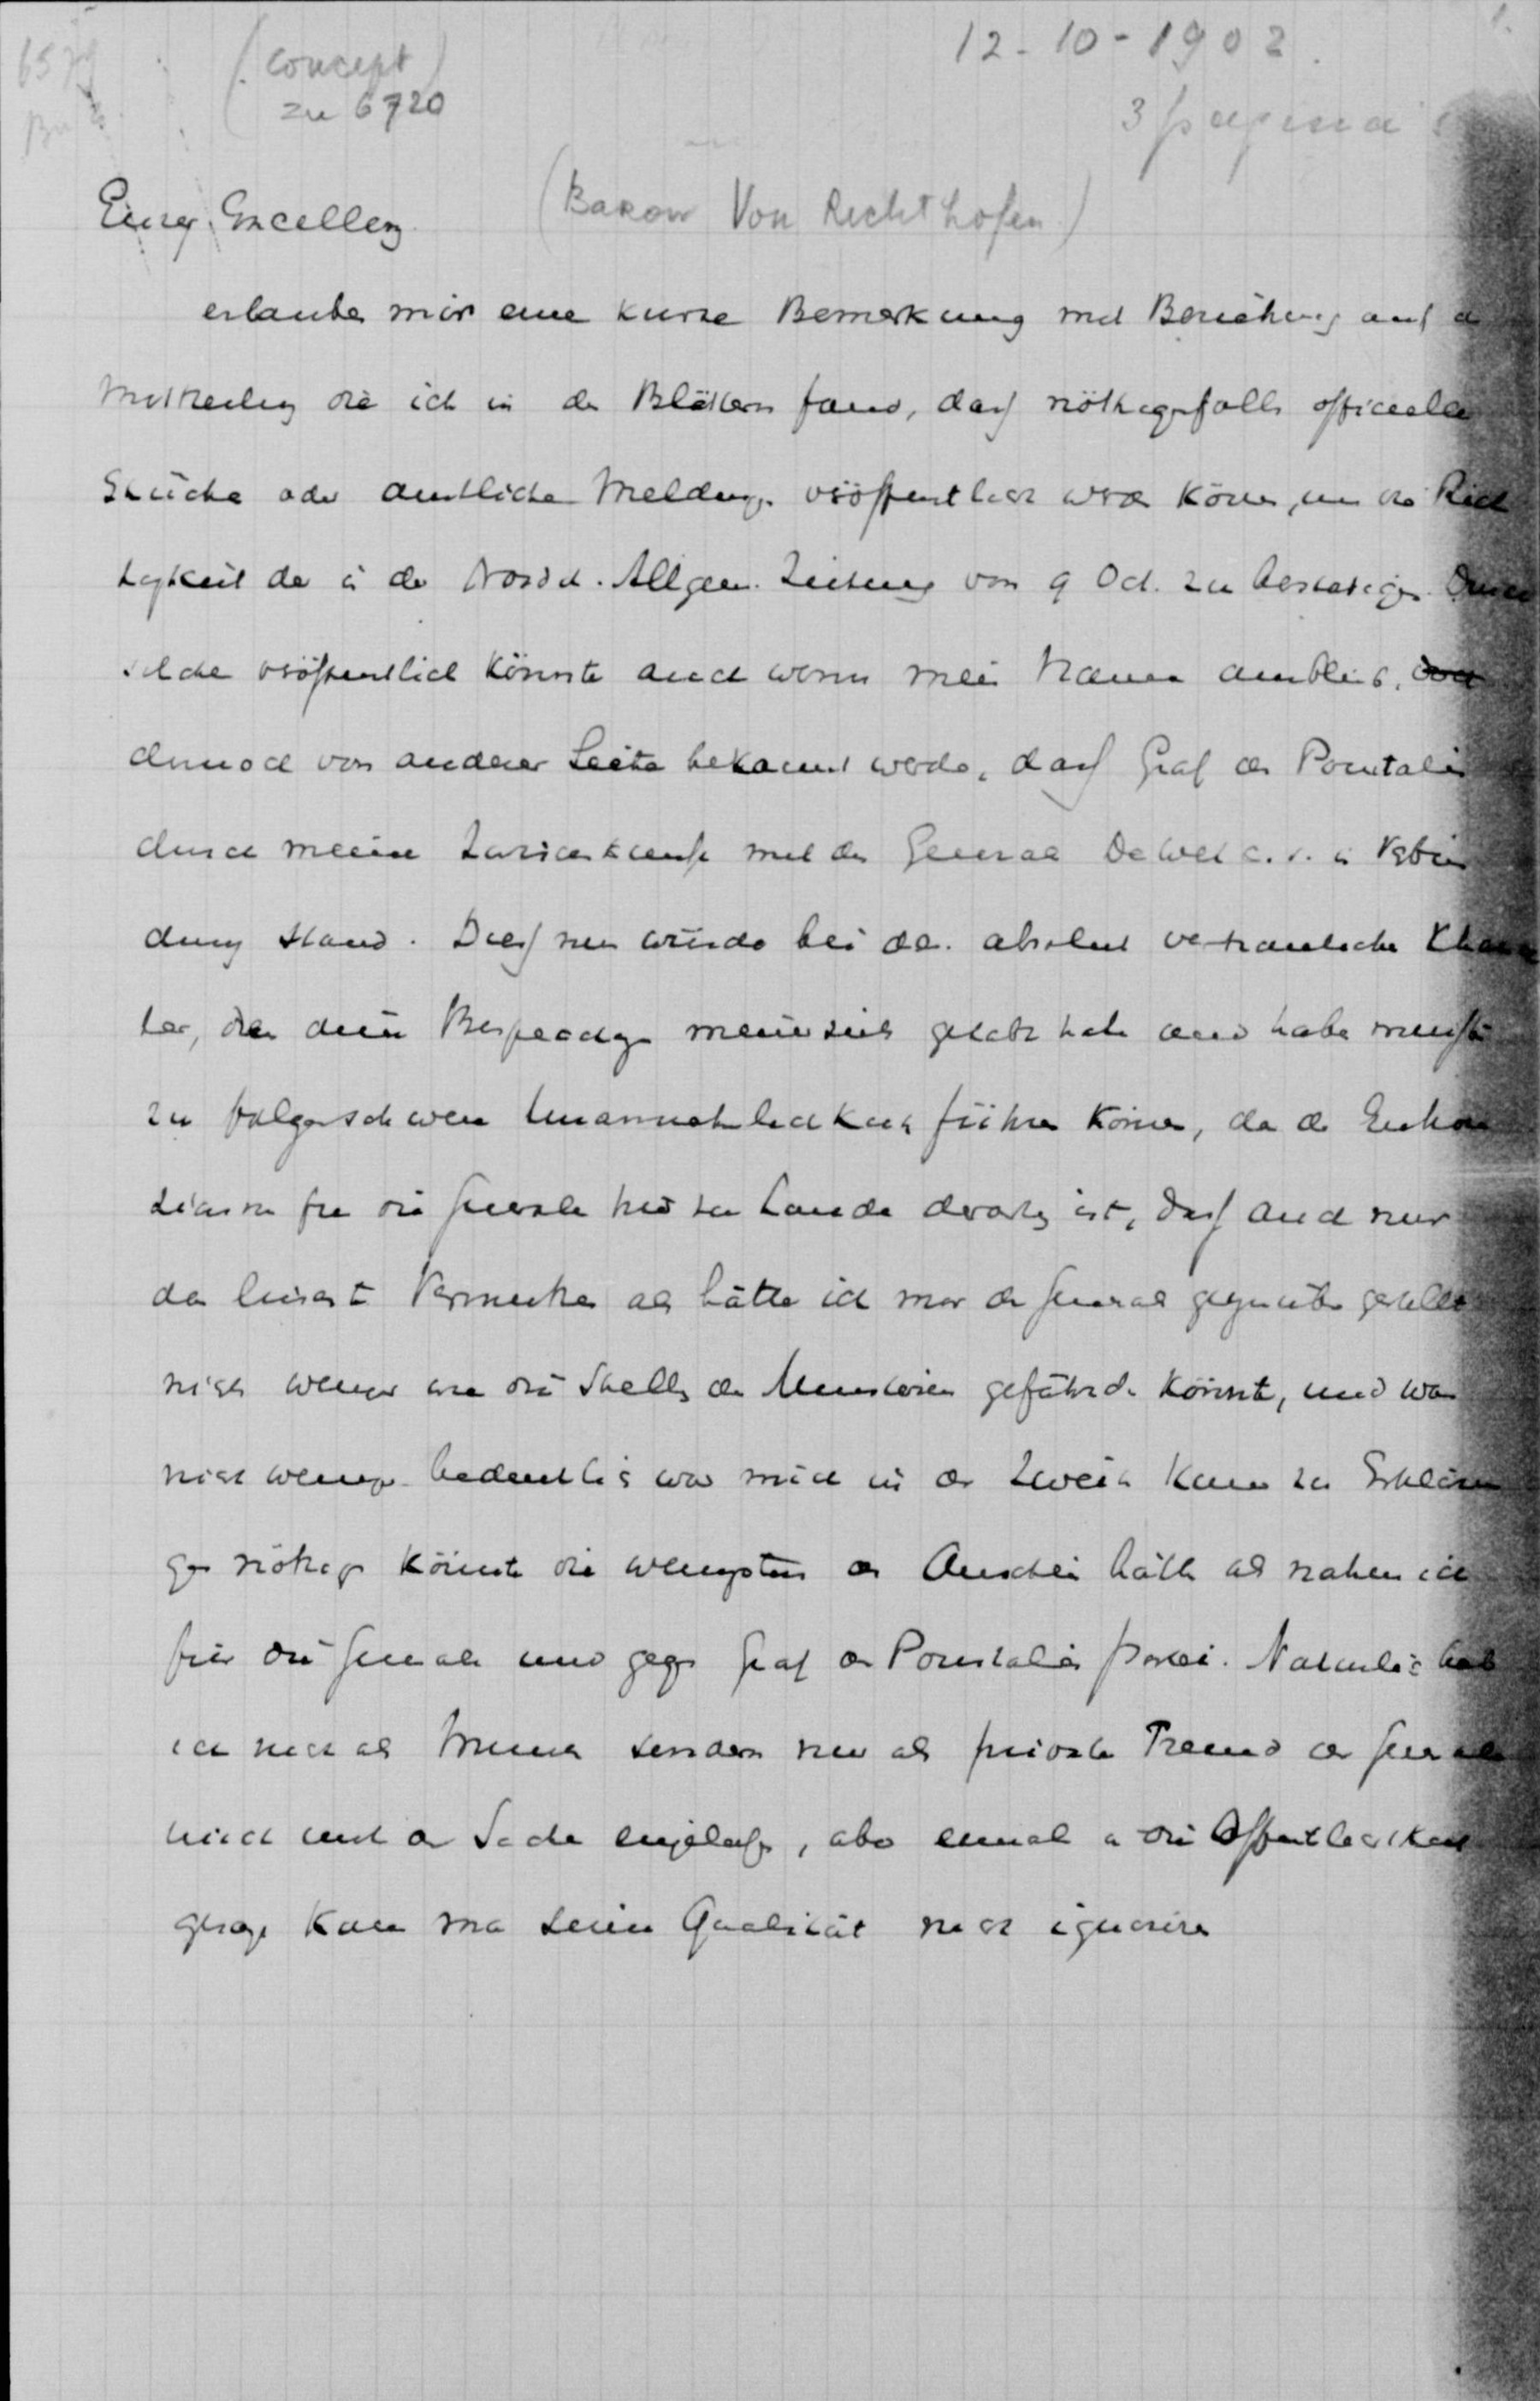 12-10-1902.
(concept)
zu 6720
3 pagina's
Euer Excellenz
(Baron Von Richthofen)
erlaube mir eine kurze Bemerkung mit Beziehung auf d
Mittheilung die ich in den Blättern fand, dass nöthigenfalls officielle
Stücke oder amtliche Meldungen veröffentlicht werden können, um die Rich
tigkeit der in der Nordd. Allgem. Zeitung von 9 Oct. zu bestätigen. Durch
solche veröffentlich könnte auch wenn mein Name ausblieb,
dennoch von anderer Seite bekannt werden, dass Graf de Pourtalès
durch meine Zwischenkunft mit den General De Wet c.s. in Verbin
dung stand. Dies nun würde bei dem absolut vertraulichen Charac
ter, den diese Besprechung meinerseits gehabt hat und haben musste
zu folgenschweren Unannehmlichkeiten führen können, da der Enthou
siasme für die Generäle hier zu Lande derartig ist, dass auch nur
das leiseste Vermuthen als hätte ich mich den General gegenüber gestellt
nicht weniger wie die Stellung des Ministerien gefährden könnte, und was
nicht weniger bedenklich war mich in der Zweiten Kammer zu Erklärun
gen nöthigen könnte die wenigstens den Anschein hätte als nahm ich
für die Generäle und gegen Graf de Pourtalès partei. Natürlich hab
ich nicht als Minister sondern nur als privater Freund der Generäle
mich mit der Sache eingelassen, aber einmal in die Öffentlichkeit
gezogen kann man seine Qualität nicht ignoriren